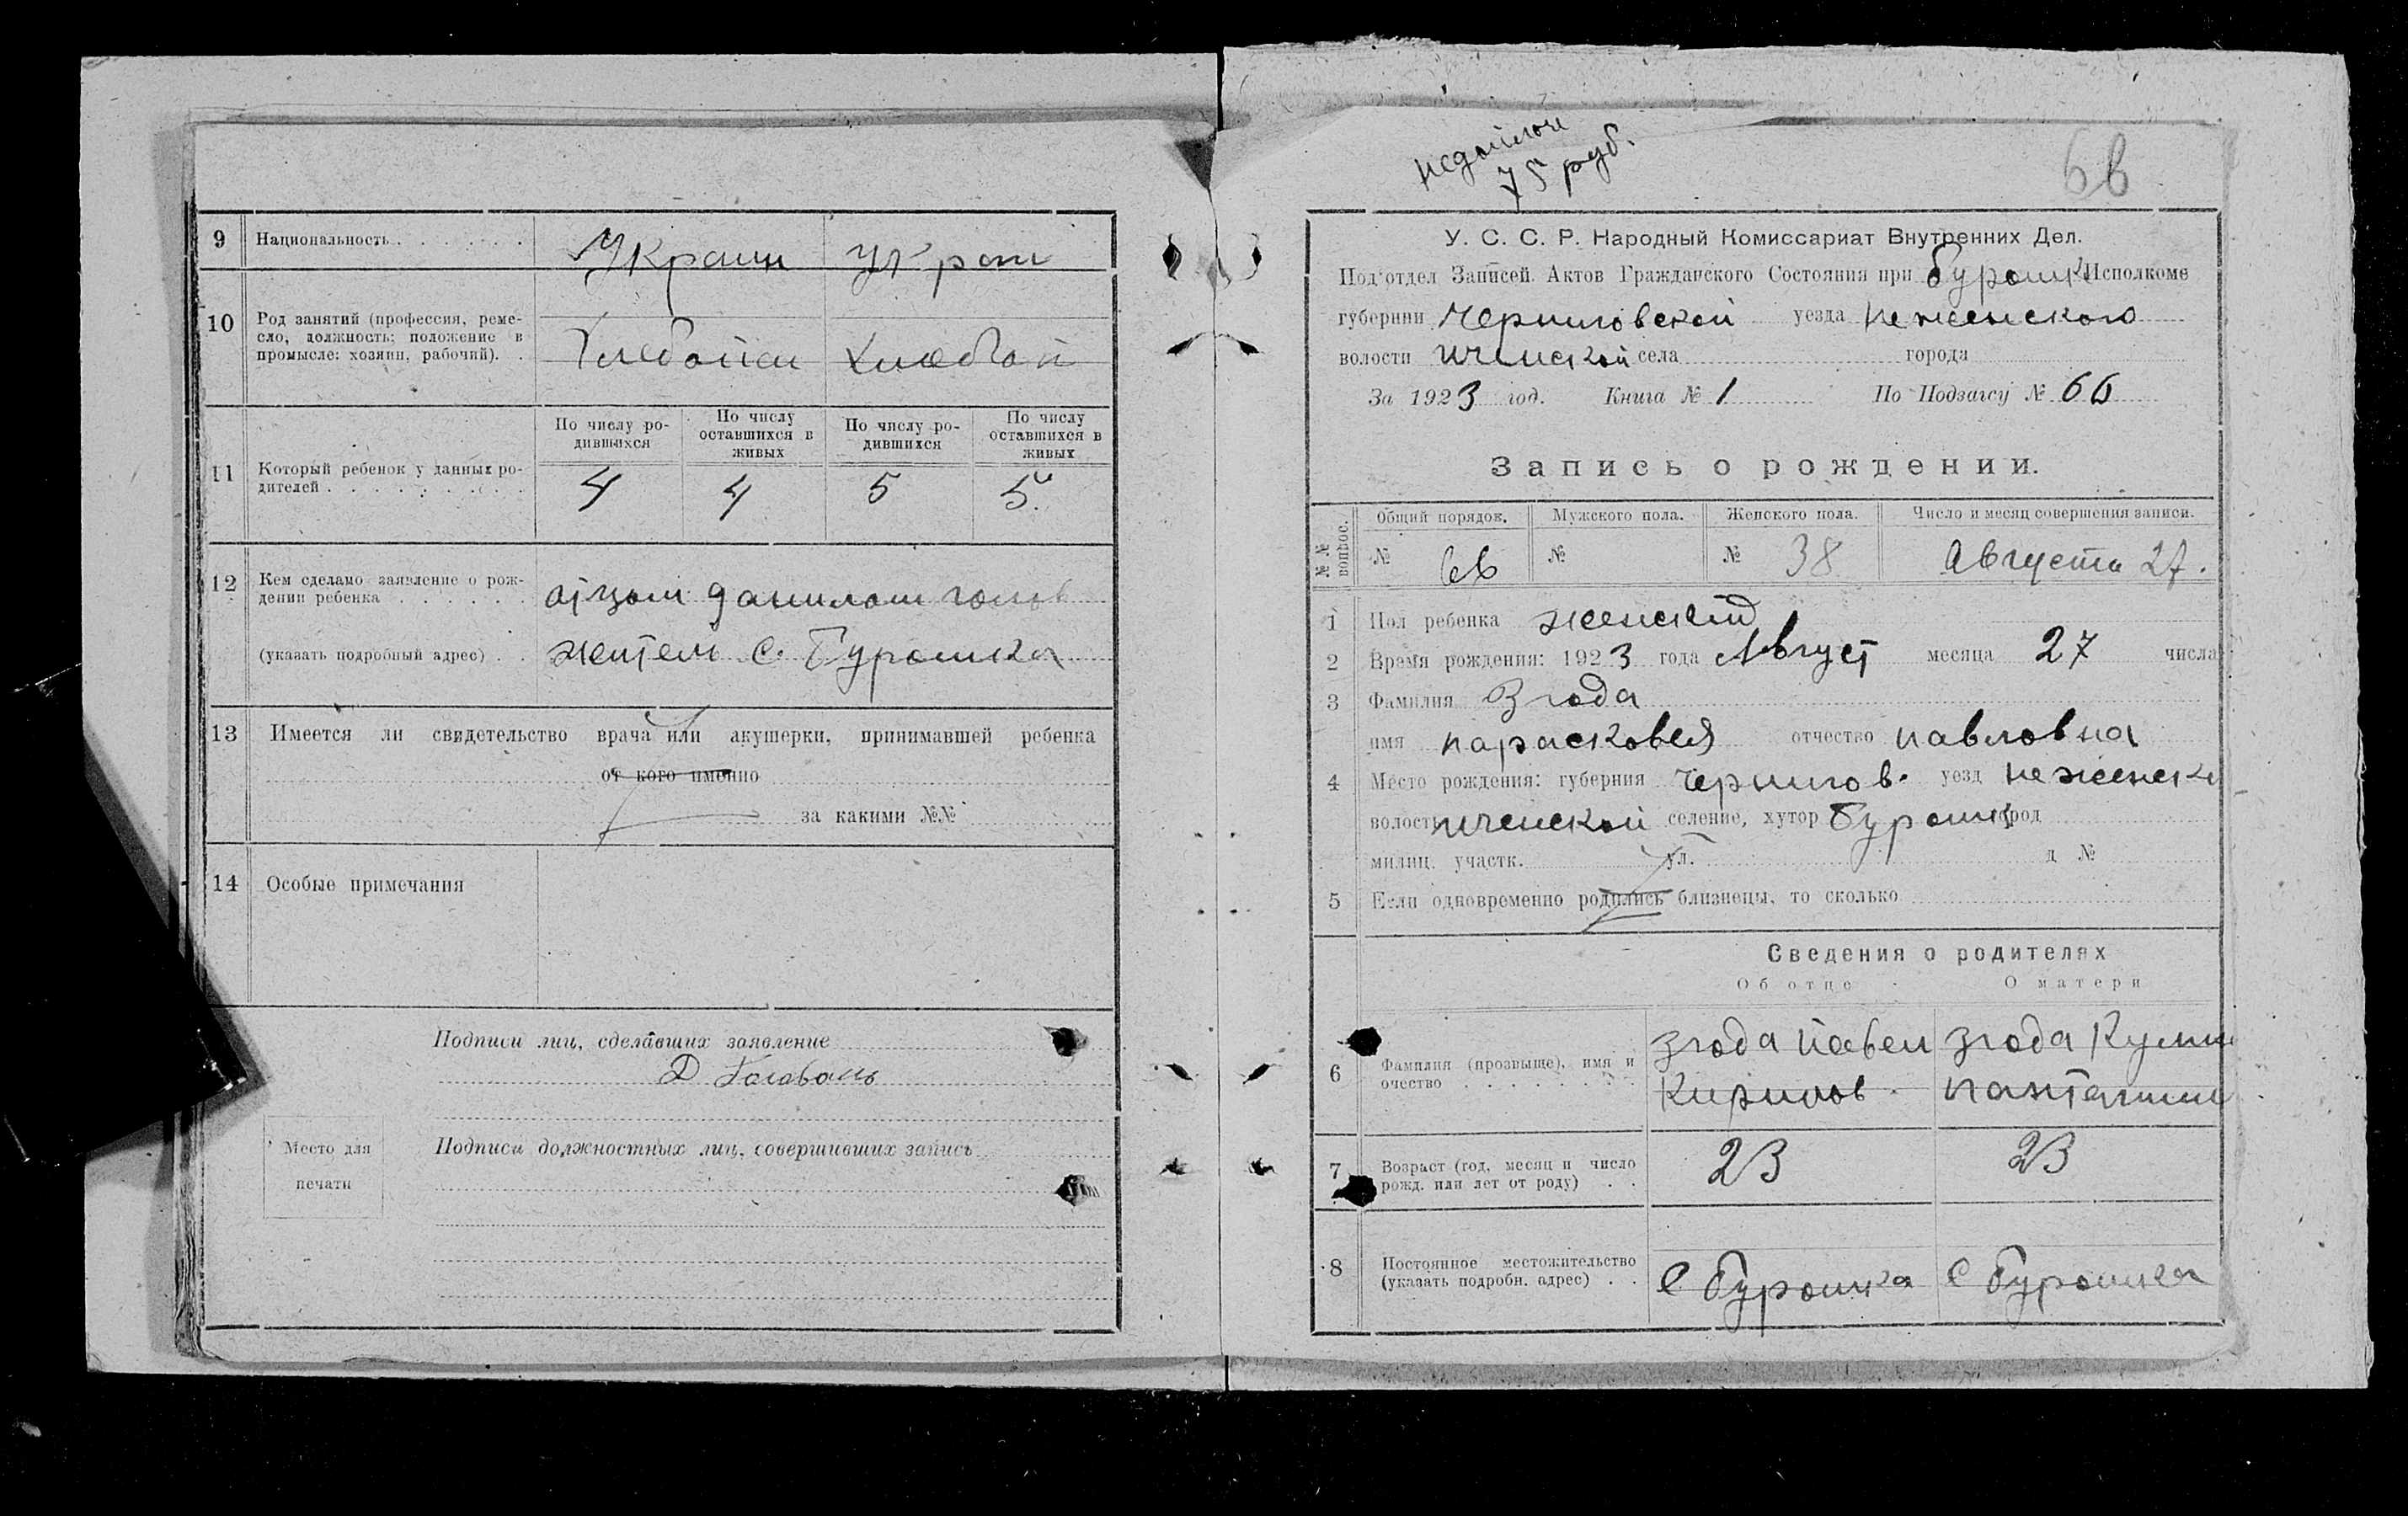 9 Национальность Украин укр
10 Род занятий (профессия, реме-
сло, должность; положение в
промысле: хозяин, рабочий).
По числу ро-
дившихся
По числу
оставшихся в
живых
По числу ро-
дившихся
По числу
оставшихся в
живых
11 Который ребенок у данных ро-
дителей
4 4 5 5.
12 Кем сделано заявление о рож-
дении ребенка отцом данилом голов
(указать подробный адрес) жител с. Бурошка
13 Имеется ли свидетельство врача или акушерки, принимавшей ребенка
от кого именно
за какими №№
14 Особые примечания
Подписи лиц, сделавших заявление
Д Головань
Место для
печати
Подписи должностных лиц, совершивших запись
75 руб.
66
У. С. С. Р. Народный Комиссариат Внутренних Дел.
Под'отдел Записей Актов Гражданского Состояния при Исполкоме
губернии Черниговской уезда неженского
волости иченской села города
За 1923 год. Книга № 1 По Подзагсу № 66
Запись о рождении.
№№ вопрос.
Общий порядок. Мужского пола. Женского пола. Число и месяц совершения записи.
№ 66 № № 38 Августа 27.
1 Пол ребенка женский
2 Время рождения: 1923 года Август месяца 27 числа
3 Фамилия Згода
имя парасковея отчество павловна
4 Место рождения: губерния Чернигов. уезд неженск
волость иченской селение, хутор город
милиц. участк. ул. д №
5 Если одновременно родились близнецы, то сколько
Сведения о родителях
Об отце О матери
6 Фамилия (прозвыще), имя и
очество
згода павел згода
Кирилов
7 Возраст (год, месяц и число
рожд. или лет от роду)
23 23
8 Постоянное местожительство
(указать подробн. адрес)
С Бурошка С Бурошка